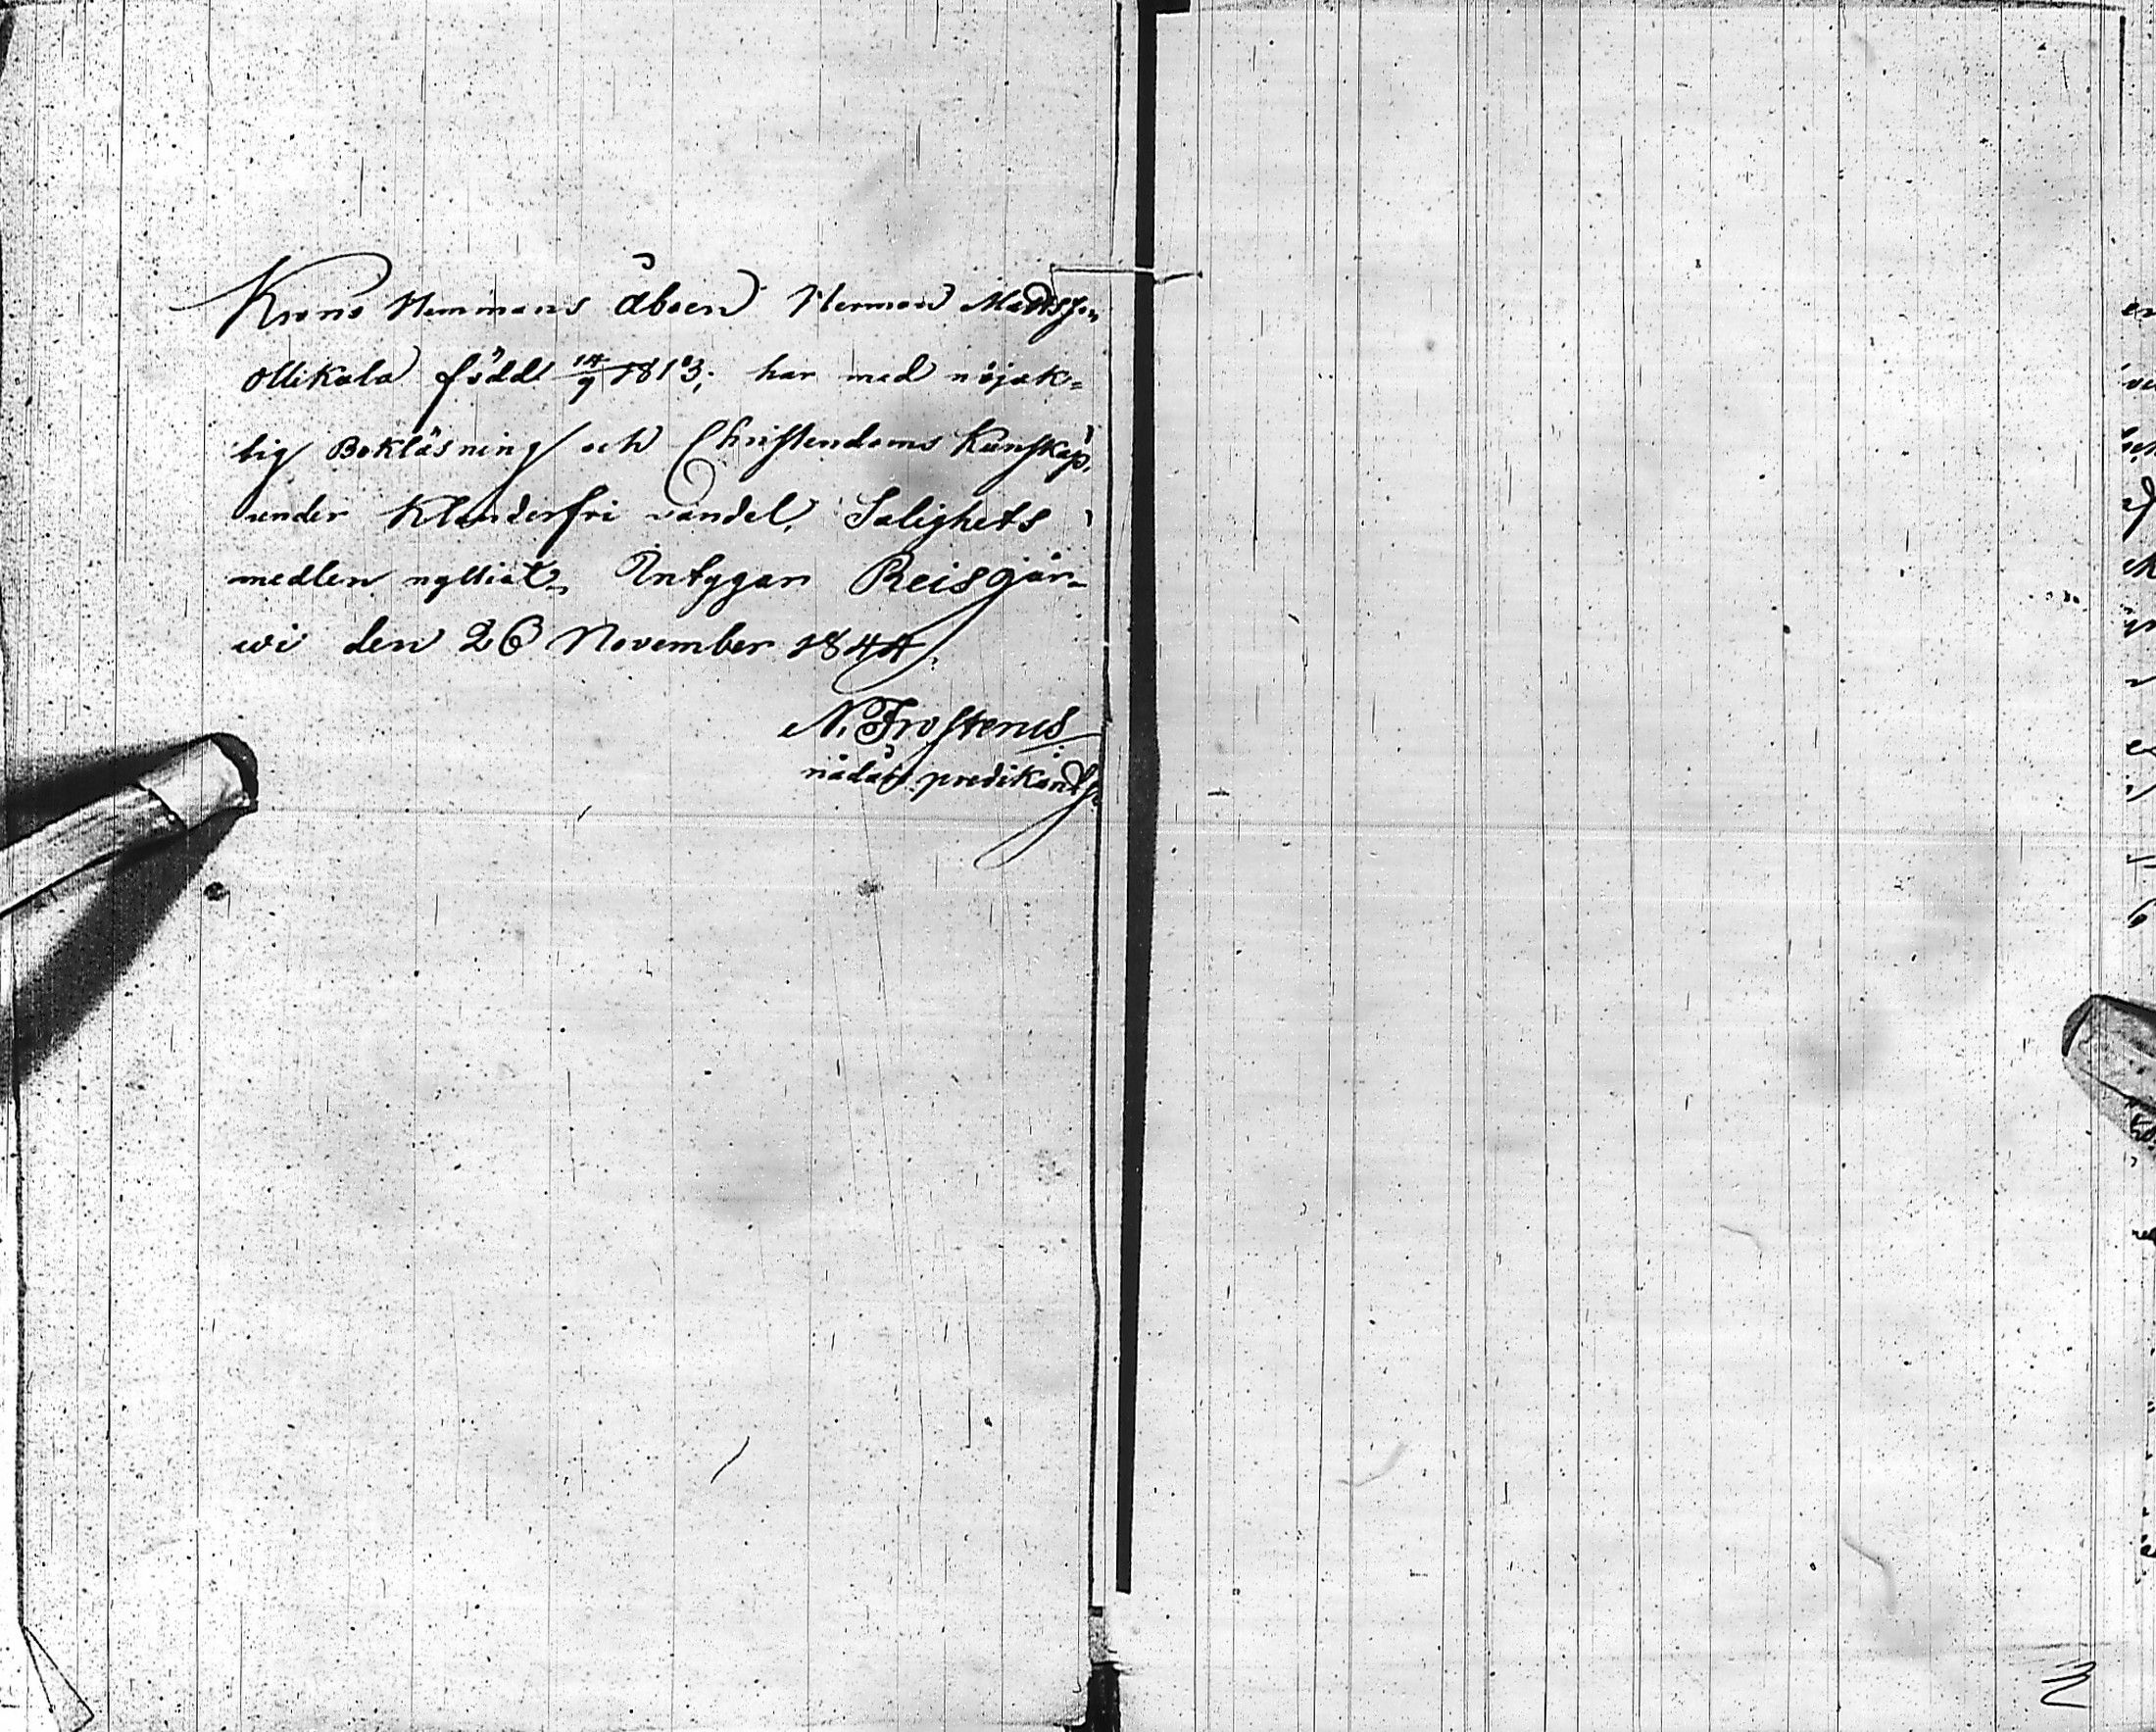 Krono Hemmans åboen Herman Mattsson
Ollikala född 14/9 1813; har med nöjak=
tig Bokläsning och Christendoms Kunskap,
under Klanderfri vandel, Salighets
medlen nyttjat, Intygar Reisjär=
wi den 26 November 1844.
N. Frosterus
nådårs predikant.